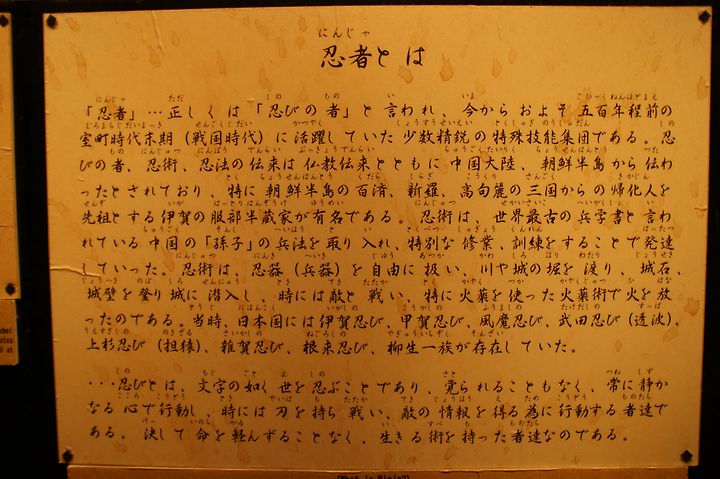 忍者とは
「忍者」…正しくは「忍びの者」と言われ、今からおよそ五百年程前の
室町時代末期（戦国時代）に活躍していた少数精鋭の特殊技能集団である。忍
びの者、忍術、忍法の伝来は仏教伝来とともに中国大陸、朝鮮半島から伝わ
ったとされており、特に朝鮮半島の百済、新羅、高句麗の三国からの帰化人を
先祖とする伊賀の服部半蔵家が有名である。忍術は、世界最古の兵学書と言わ
れている中国の「孫子」の兵法を取り入れ、特別な修業、訓練をすることで発達
していった。忍術は、忍器（兵器）を自由に扱い、川や城の堀を渡り、城石、
城壁を登り城に潜入し、時には敵と戦い、特に火薬を使った火薬術で火を放
ったのである。当時、日本国には伊賀忍び、甲賀忍び、風魔忍び、武田忍び（透波）、
上杉忍び（担猿）、雑賀忍び、根来忍び、柳生一族が存在していた。
…忍びとは、文字の如く世を忍ぶことであり、覚られることもなく、常に静か
なる心で行動し、時には刃を持ち戦い、敵の情報を得る為に行動する者達で
ある。決して命を軽んずることなく、生きる術を持った者達なのである。
(What is Ninja?)